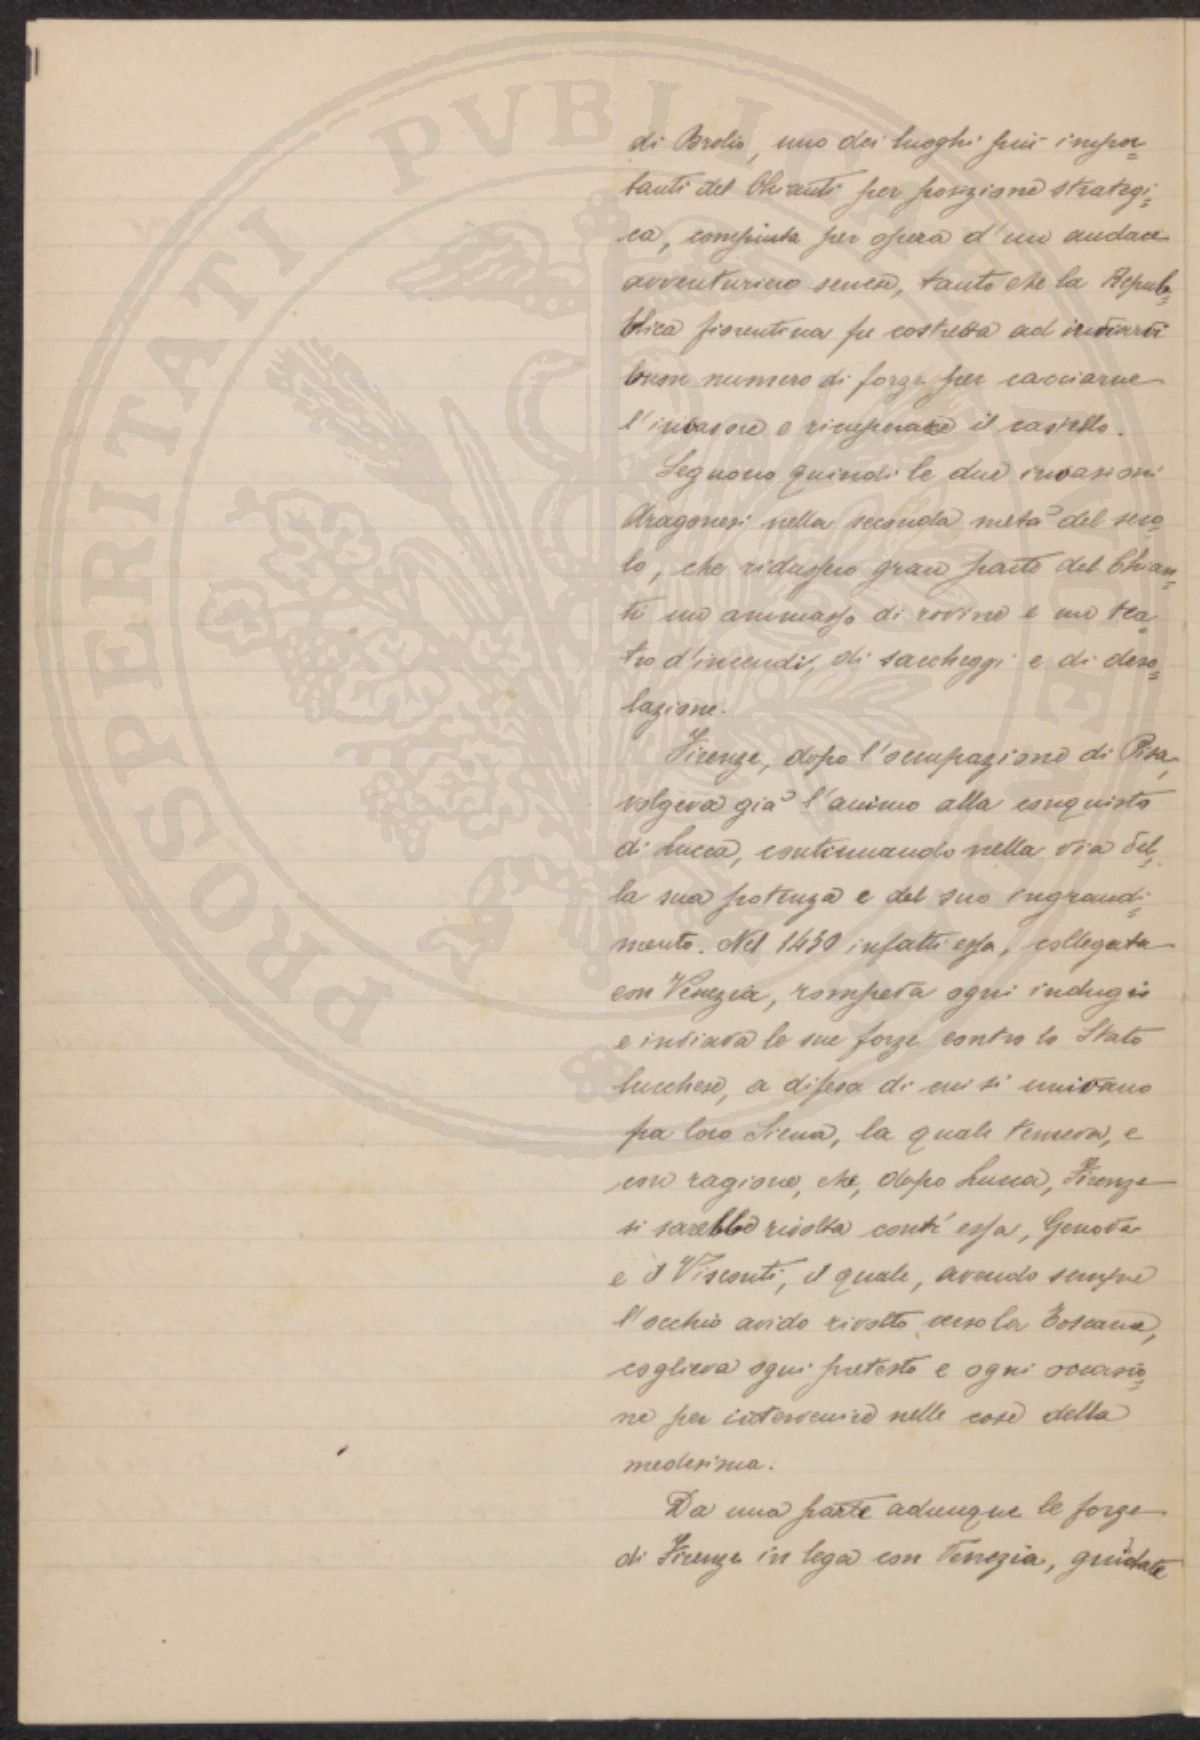 di Brolio, uno dei luoghi più impor=
tanti del Chianti per posizione strategi=
ca, compiuta per opera d'un audace
avventuriero senese, tanto che la Repub=
blica fiorentina fu costretta ad inviarvi
buon numero di forze per cacciarne
l'invasore e ricuperare il castello.
Seguono quindi le due invasioni
Aragonesi nella seconda metà del seco=
lo, che ridussero gran parte del Chian=
ti un ammasso di rovine e un tea=
tro d'incendi, di saccheggi e di deso=
lazione.
Firenze, dopo l'occupazione di Pisa,
volgeva già l'animo alla conquista
di Lucca, continuando nella via del=
la sua potenza e del suo ingrandi=
mento. Nel 1430 infatti essa, collegata
con Venezia, rompeva ogni indugio
e inviava le sue forze contro lo Stato
lucchese, a difesa di cui si univano
fra loro Siena, la quale temeva, e
con ragione, che, dopo Lucca, Firenze
si sarebbe rivolta contr'essa, Genova
e il Visconti, il quale, avendo sempre
l'occhio avido rivolto verso la Toscana,
coglieva ogni pretesto e ogni occasio=
ne per intervenire nelle cose della
medesima.
Da una parte adunque le forze
di Firenze in lega con Venezia, guidate
PROSPERITATI PVBLICAE AVGENDAE